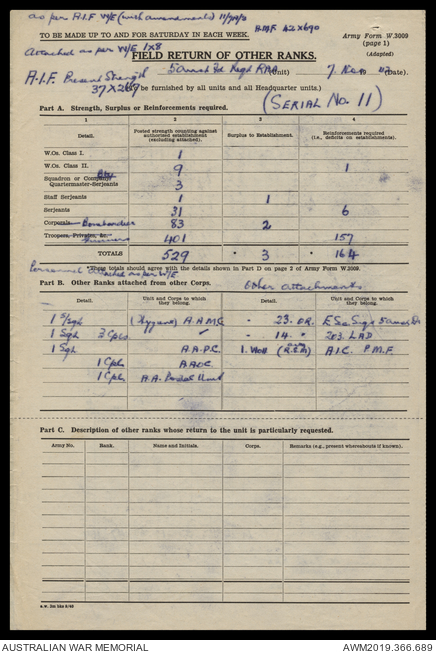 as per A.I.F W/E (with amendments) 11/7A/2
TO BE MADE UP TO AND FOR SATURDAY IN EACH WEEK.
AMF 42X690
Army Form W.3009
(page 1)
(Adapted)
Attached as per W/E 1X8
FIELD RETURN OF OTHER RANKS.
A.I.F. Present Strength
37X269
Regt RAA (Unit) 7. (Date).
be furnished by all units and all Headquarter units.)
(SERIAL No. 11)
Part A. Strength, Surplus or Reinforcements required.
1 2 3 4
Detail. Posted strength counting against authorized establishment (excluding attached). Surplus to Establishment. Reinforcements required (i.e., deficits on establishments).
W.Os. Class I. 1
W.Os. Class II. 9 1
Squadron or Company Bty
Quartermaster-Serjeants 3
Staff Serjeants 1 1
Serjeants 31 6
Corporals Bombardiers 83 2
Troopers, Privates, &c. Gunners 401 157
TOTALS 529 * 3 * 164
*These totals should agree with the details shown in Part D on page 2 of Army Form W.3009.
Personnel attached as per W/E
Part B. Other Ranks attached from other Corps.
Other attachments
Detail. Unit and Corps to which they belong. Detail. Unit and Corps to which they belong.
1 S/Sgt (Hygiene) A.A.M.C. - 23. OR. E Sec Sigs
1 Sgt 2 Cpls " - 14. " 203. LAD
1 Sgt A.A.P.C. 1. WOII (R.S.M) A.I.C. P.M.F.
1 Cpl AAOC
1 Cpl A.A. Postal Unit
Part C. Description of other ranks whose return to the unit is particularly requested.
Army No. Rank. Name and Initials. Corps. Remarks (e.g., present whereabouts if known).
AUSTRALIAN WAR MEMORIAL
AWM2019.366.689